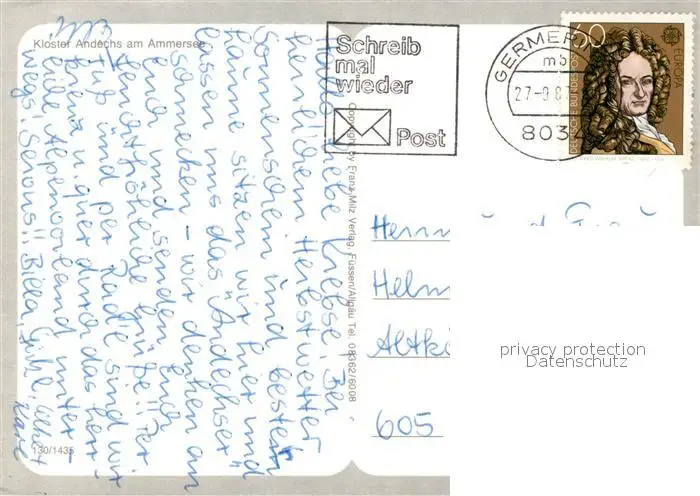 Kloster Andechs am Ammersee
Hallo liebe Krebse! Bei
herrlichem Herbstwetter
Sonnenschein und bester
Laune sitzen wir hier und
lassen uns das "Andechser"
schmecken - wir denken an
Euch und senden Euch
Grüße!! Per
Fuß und per Radl sind wir
kreuz u. quer durch das herr-
liche Alpenvorland unter-
wegs! Servus!!
130/1435
Copyright by Franz Milz Verlag, Füssen/Allgäu Tel. 08362/6008
Schreib
mal
wieder
Post
GERMER
mb
27-9.8
803
60
DEUTSCHE BUNDESPOST
EUROPA
Herrn und Frau
Helm
Altkö
605
privacy protection
Datenschutz